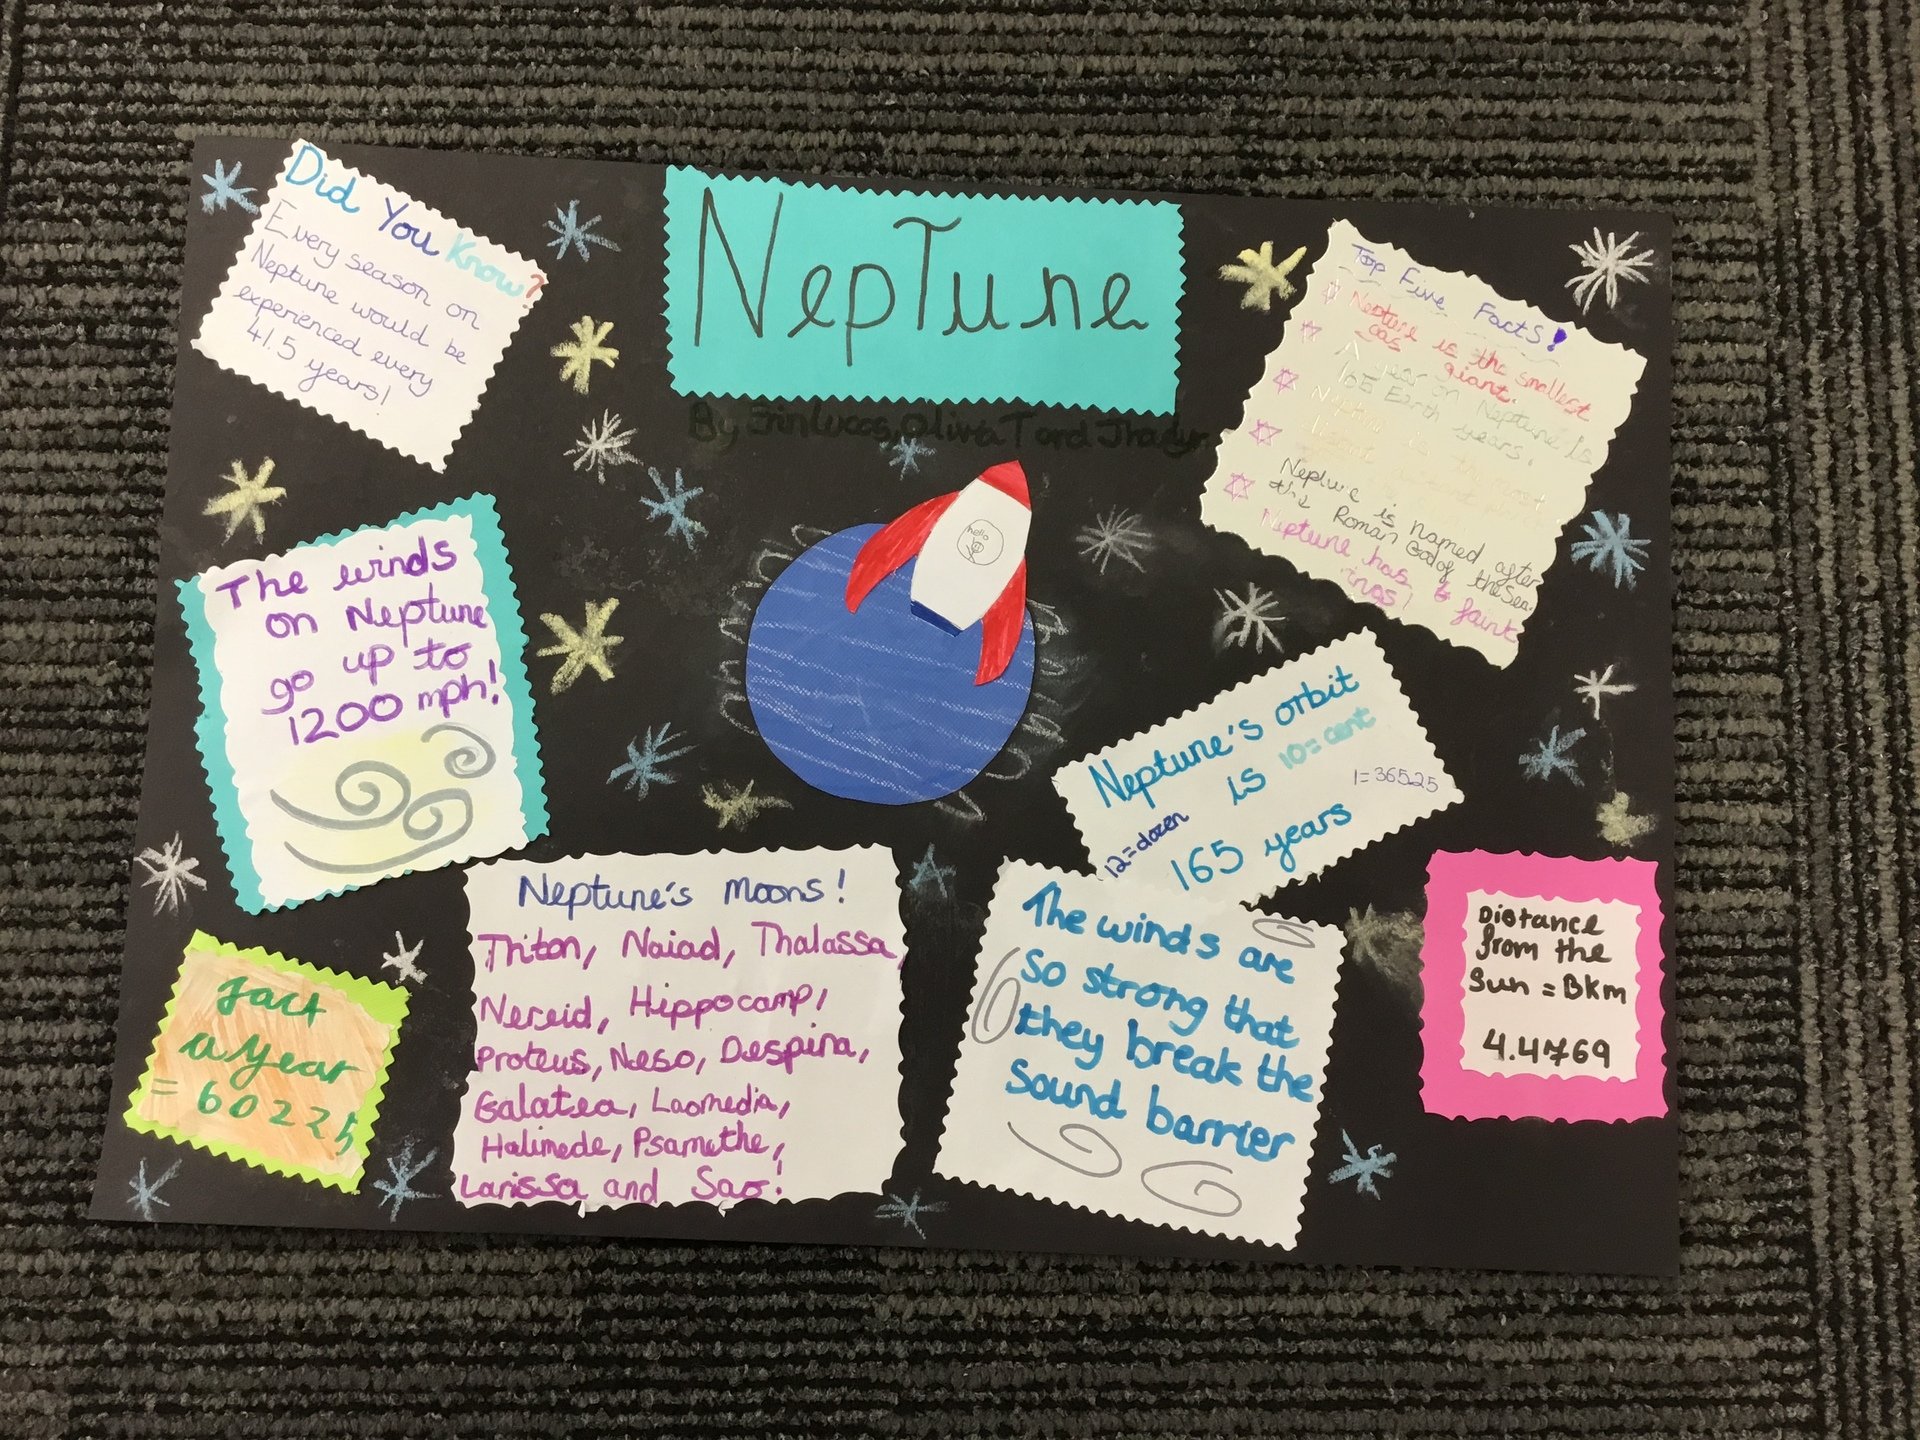 Did You Know?
Every season on
Neptune would be
experienced every
41.5 years!
Neptune
By Erin Lucas, Olivia T and
Top Five Facts!
Neptune is the smallest
gas giant.
A year on Neptune is
165 Earth years.
Neptune is the most
distant
Neptune is named after
the Roman God of the Sea.
Neptune has 6 faint
hello
The winds
on Neptune
go up to
1200 mph!
Neptune's orbit
is 10=cent
1=36525
12=dozen
165 years
Neptune's moons!
Triton, Naiad, Thalassa,
Nereid, Hippocamp,
Proteus, Neso, Despina,
Galatea, Laomedia,
Halimede, Psamathe,
Larissa and Sao!
The winds are
so strong that
they break the
sound barrier
Distance
from the
Sun = BKm
4.4769
fact
a year
= 60225